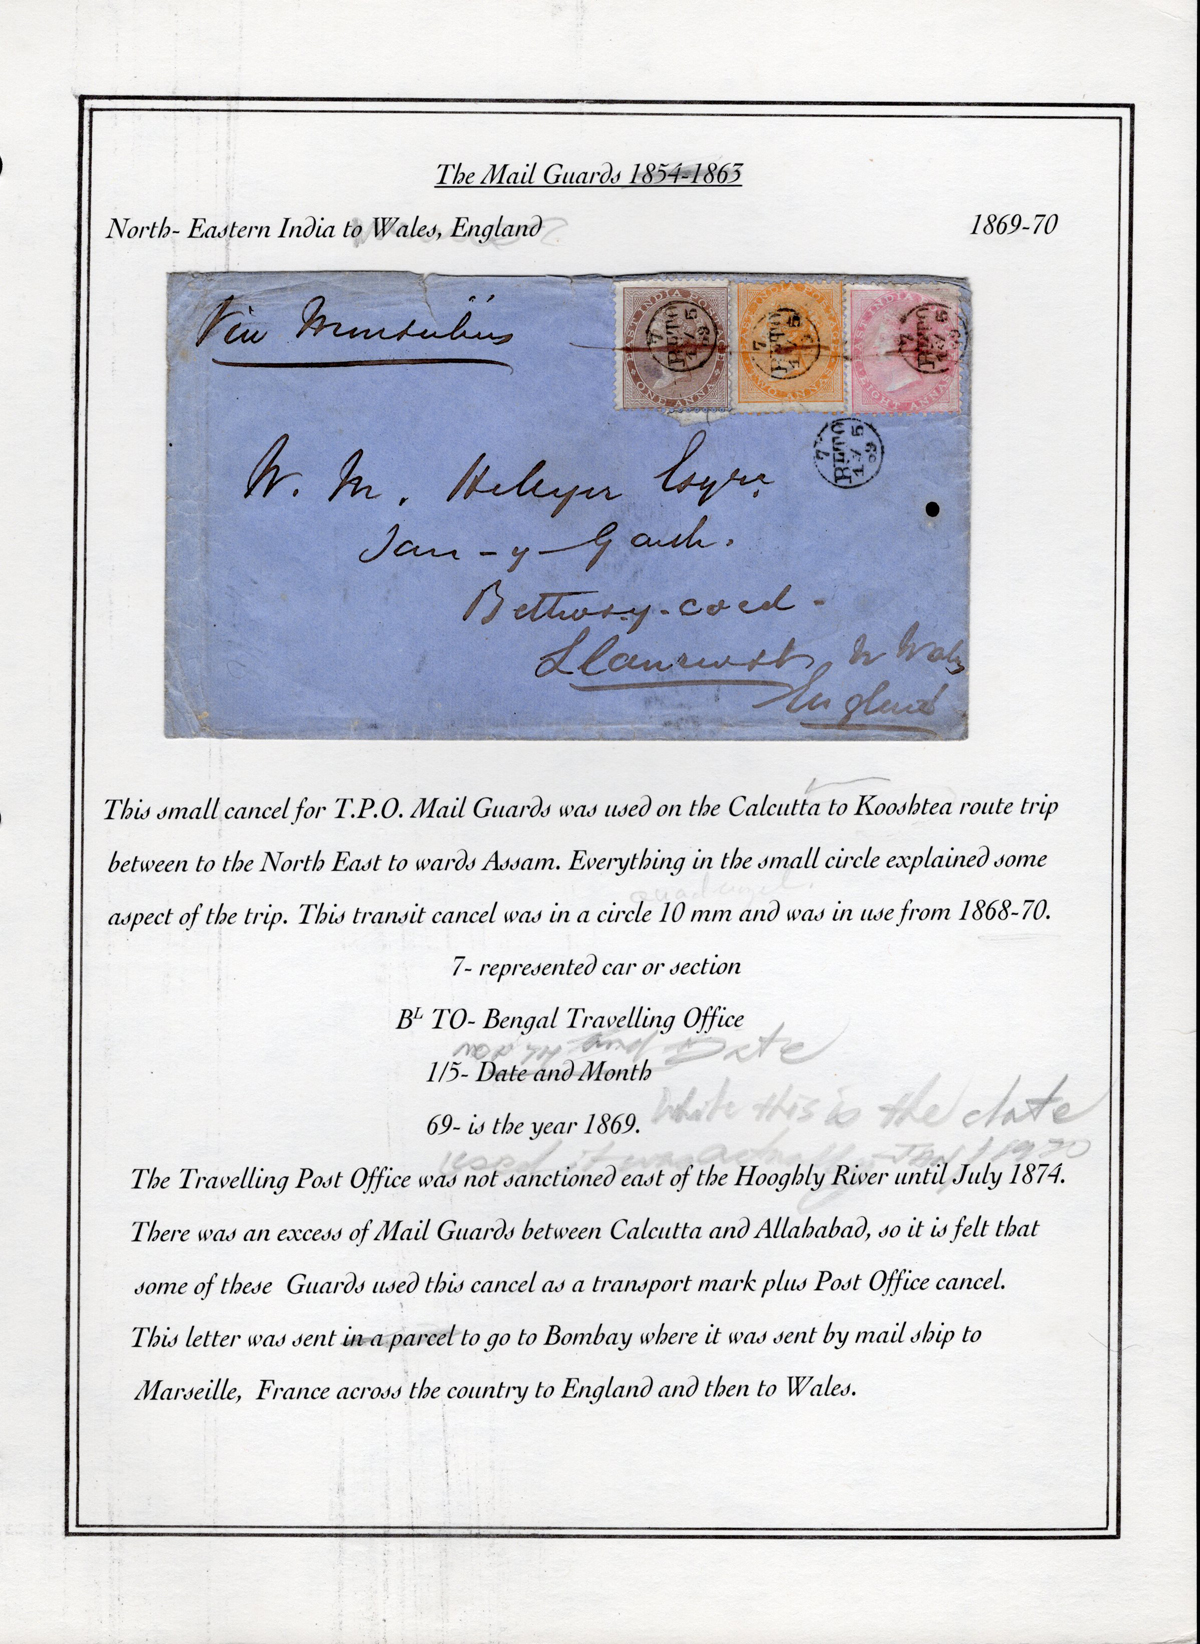 The Mail Guards 1854-1863
North- Eastern India to Wales, England 1869-70
Via Marseilles
EAST INDIA POSTAGE
ONE ANNA
TWO ANNAS
EAST INDIA
EIGHT ANNAS
7
BLTO
1/5
69
W. M. Helsyer Esqre
Jan-y-Garth.
Bettwsy-coed -
Llanrwst, N Wales
England
This small cancel for T.P.O. Mail Guards was used on the Calcutta to Kooshtea route trip
between to the North East to wards Assam. Everything in the small circle explained some
aspect of the trip. This transit cancel was in a circle 10 mm and was in use from 1868-70.
7- represented car or section
Bᴸ TO- Bengal Travelling Office
month and Date
1/5- Date and Month
69- is the year 1869. While this is the date
used it was actually JAN 1 1870
The Travelling Post Office was not sanctioned east of the Hooghly River until July 1874.
There was an excess of Mail Guards between Calcutta and Allahabad, so it is felt that
some of these Guards used this cancel as a transport mark plus Post Office cancel.
This letter was sent in a parcel to go to Bombay where it was sent by mail ship to
Marseille, France across the country to England and then to Wales.